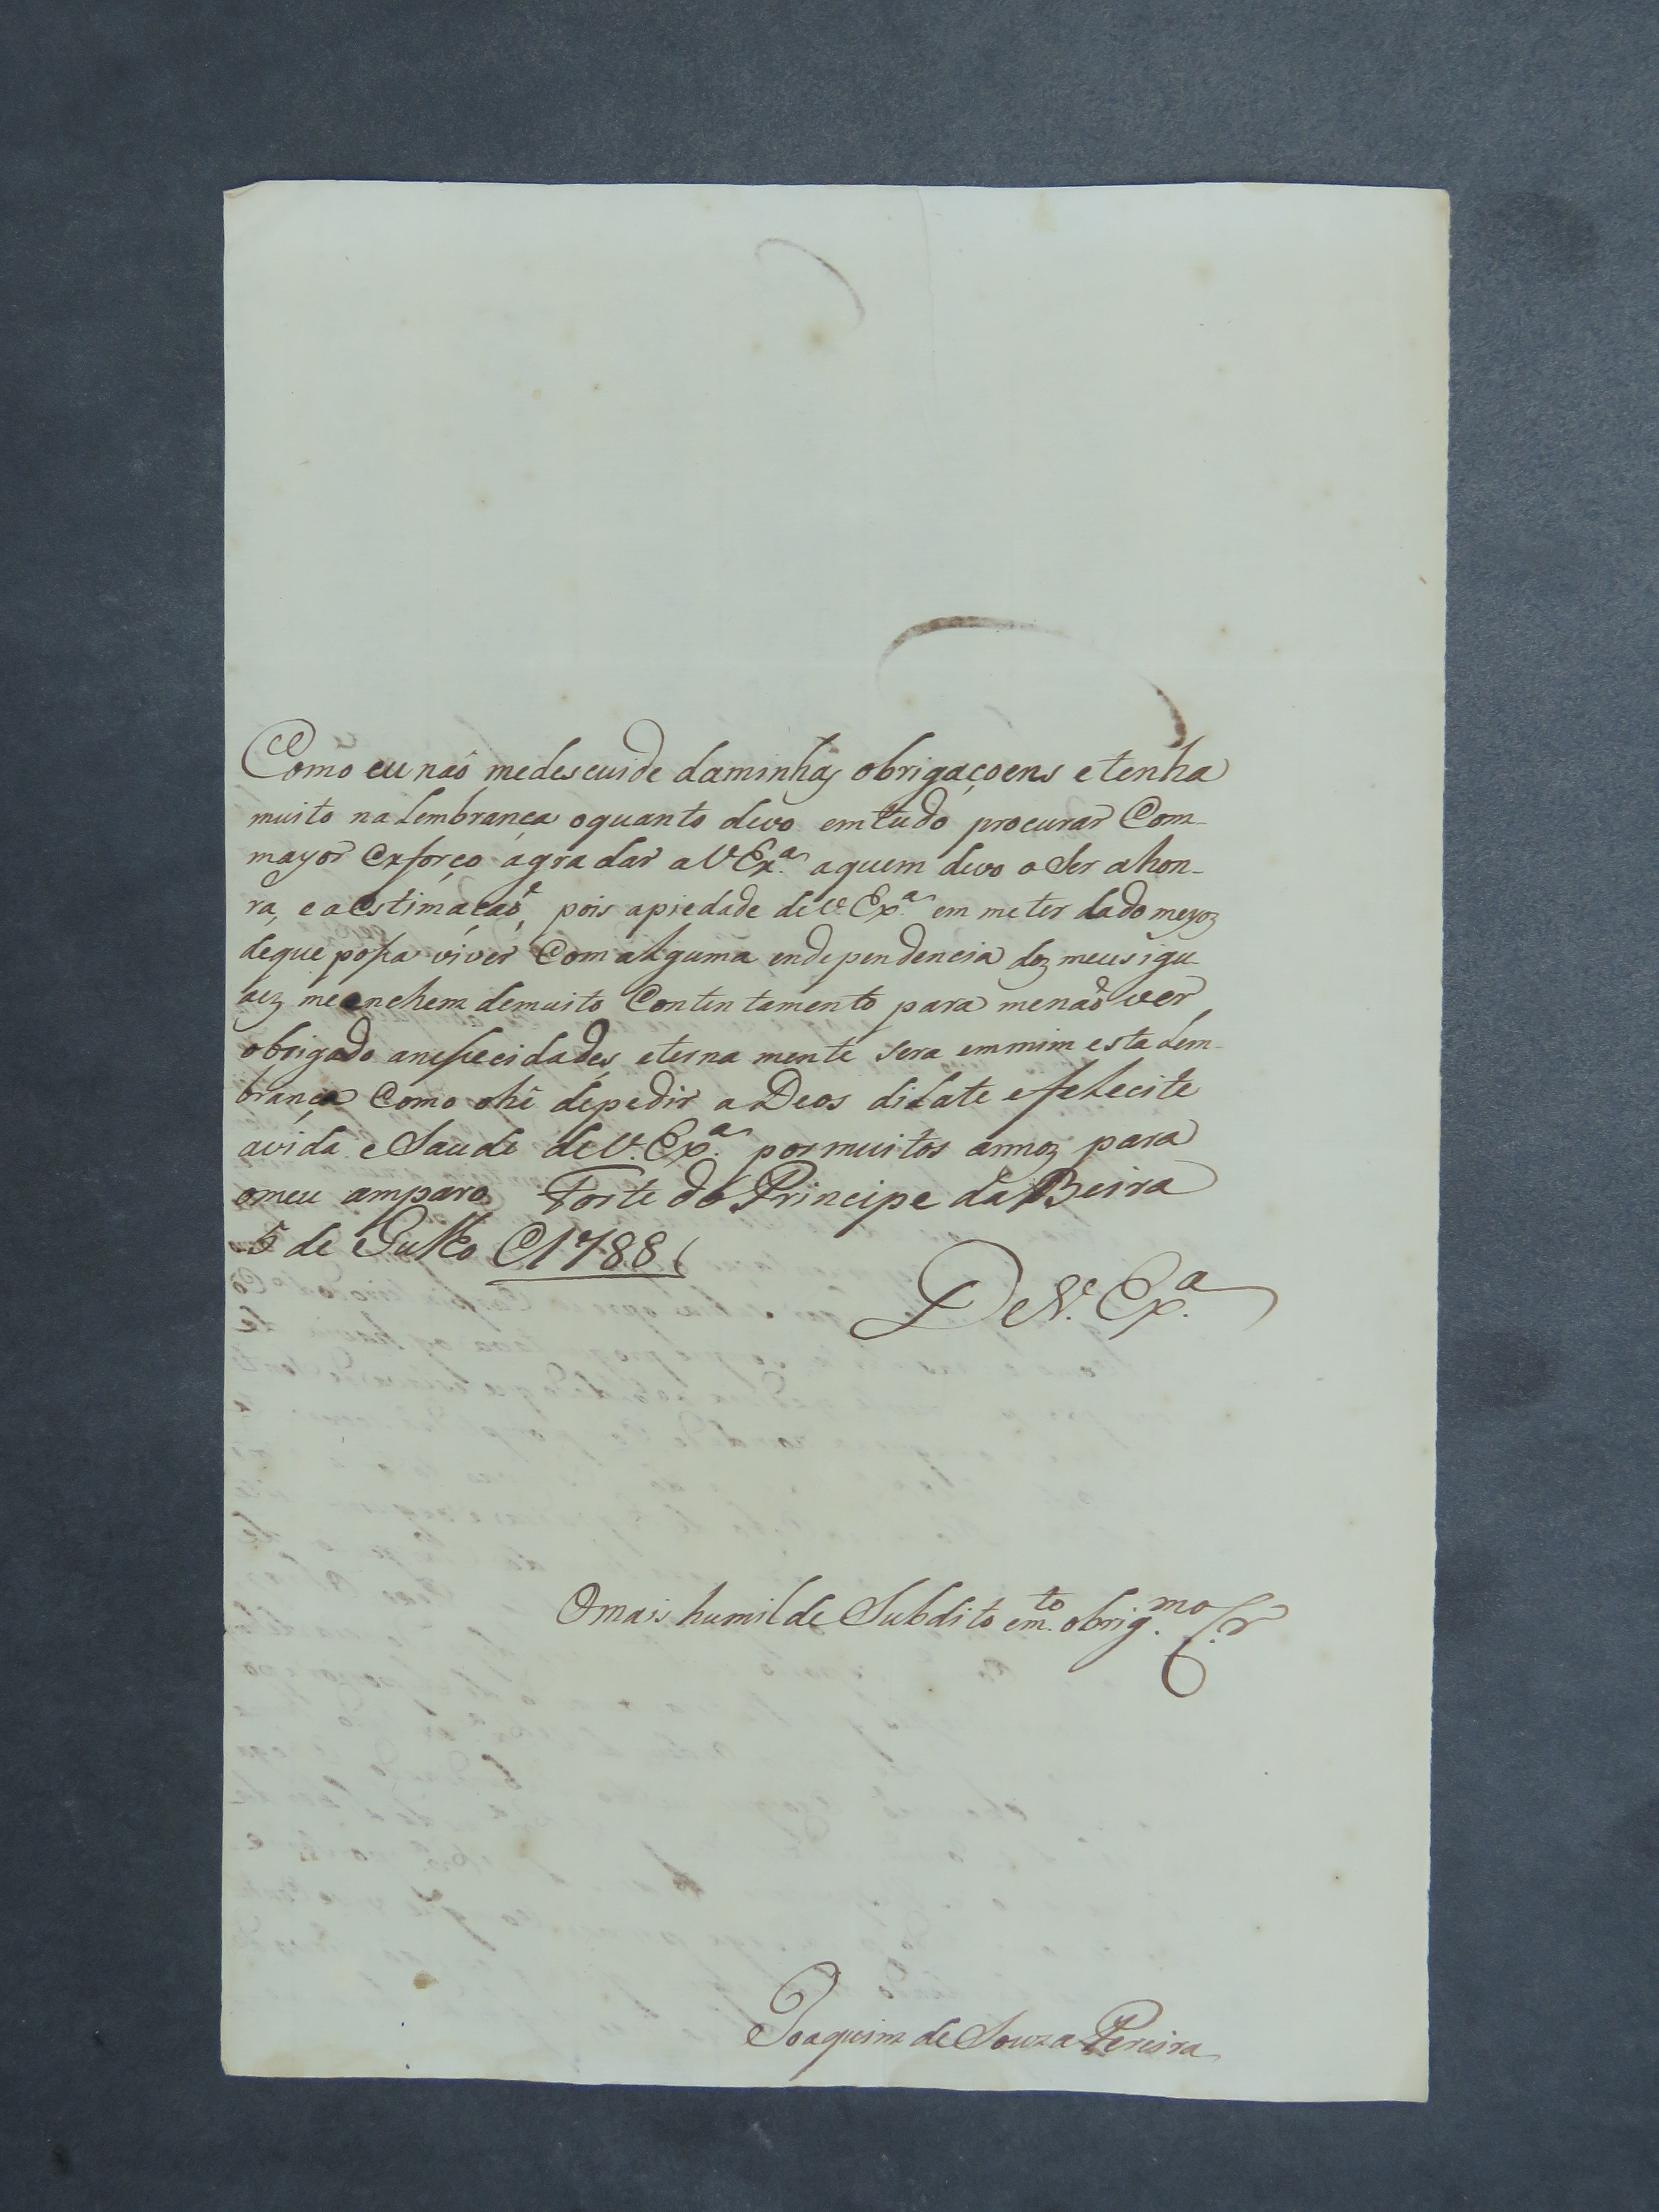 Como eu naõ medescuide daminhas obrigaçoens etenha
muito na Lembrança oquanto devo emtudo procurar Com
mayor exforço agradar a V Ex.ª aquem devo o Ser ahon-
ra, eaestimacaõ, pois apiedade deV. Ex.ª em me ter dado meyoz
deque possa viver Com alguma endependencia doz meus igu
aez meenchem demuito Contentamento para menaõ ver
obrigado anessecidades, eterna mente sera emmim esta Lem-
brança Como ohé depedir a Deos dilate efelecite
avida e Saude deV. Ex.ª pormuitos annoz para
omeu amparo Forte do Principe da Beira
5 de Julho 1788
De V. Ex.ª
Omais humilde Subdito em.to obrig.mo C.r
Joaquim de Souza Pereira